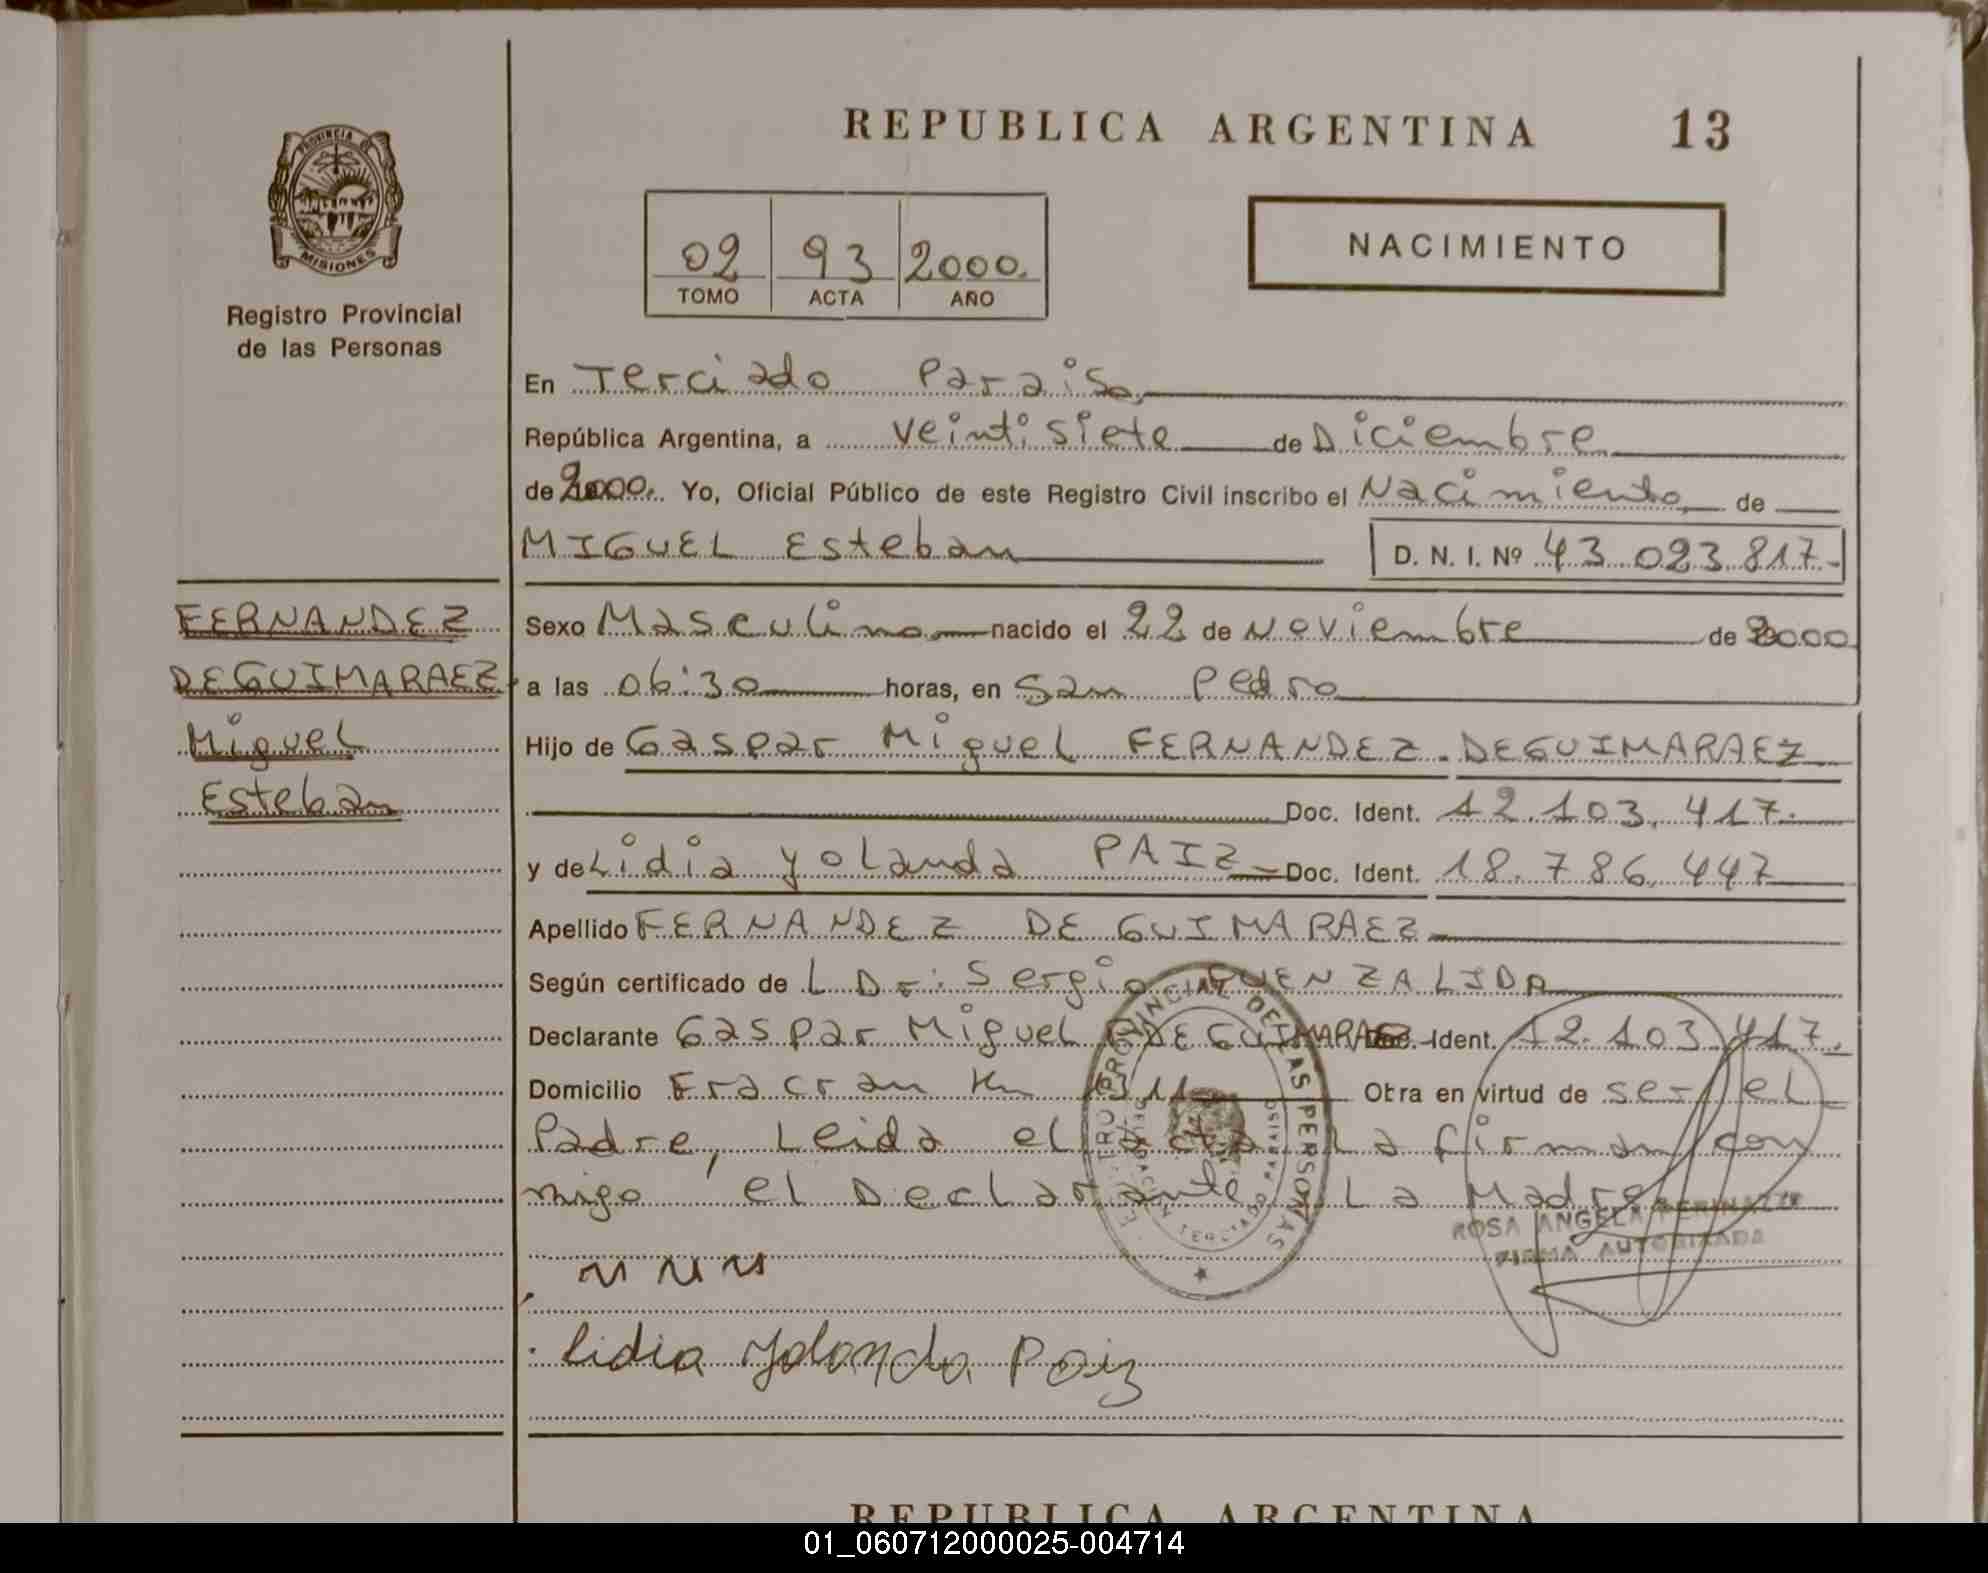 REPUBLICA ARGENTINA 13
PROVINCIA DE
MISIONES
Registro Provincial
de las Personas
02 93 2000.
TOMO ACTA AÑO
NACIMIENTO
En Terciado Paraiso
República Argentina, a veintisiete de Diciembre
de 2000. Yo, Oficial Público de este Registro Civil inscribo el Nacimiento de
MIGUEL Esteban D. N. I. Nº 43.023.817.-
FERNANDEZ
DEGUIMARAEZ
Miguel
Esteban
Sexo Masculino nacido el 22 de Noviembre de 2000
a las 06:30 horas, en San Pedro
Hijo de Gaspar Miguel FERNANDEZ DEGUIMARAEZ
Doc. Ident. 12.103.417.
y de Lidia Yolanda PAIZ Doc. Ident. 18.786.447
Apellido FERNANDEZ DE GUIMARAEZ
Según certificado de L Dr. Sergio FUENZALIDA
Declarante Gaspar Miguel F DEGUIMARAEZ Doc. Ident. 12.103.417.
Domicilio Fracran Km Obra en virtud de ser el
Padre, Leida el acta La firman con
migo el Declarante La Madre
REGISTRO PROVINCIAL DE LAS PERSONAS
DELEGACION TERCIADO PARAISO
ROSA ANGELA
FIRMA AUTORIZADA
Lidia Yolanda Paiz
REPUBLICA ARGENTINA
01_060712000025-004714